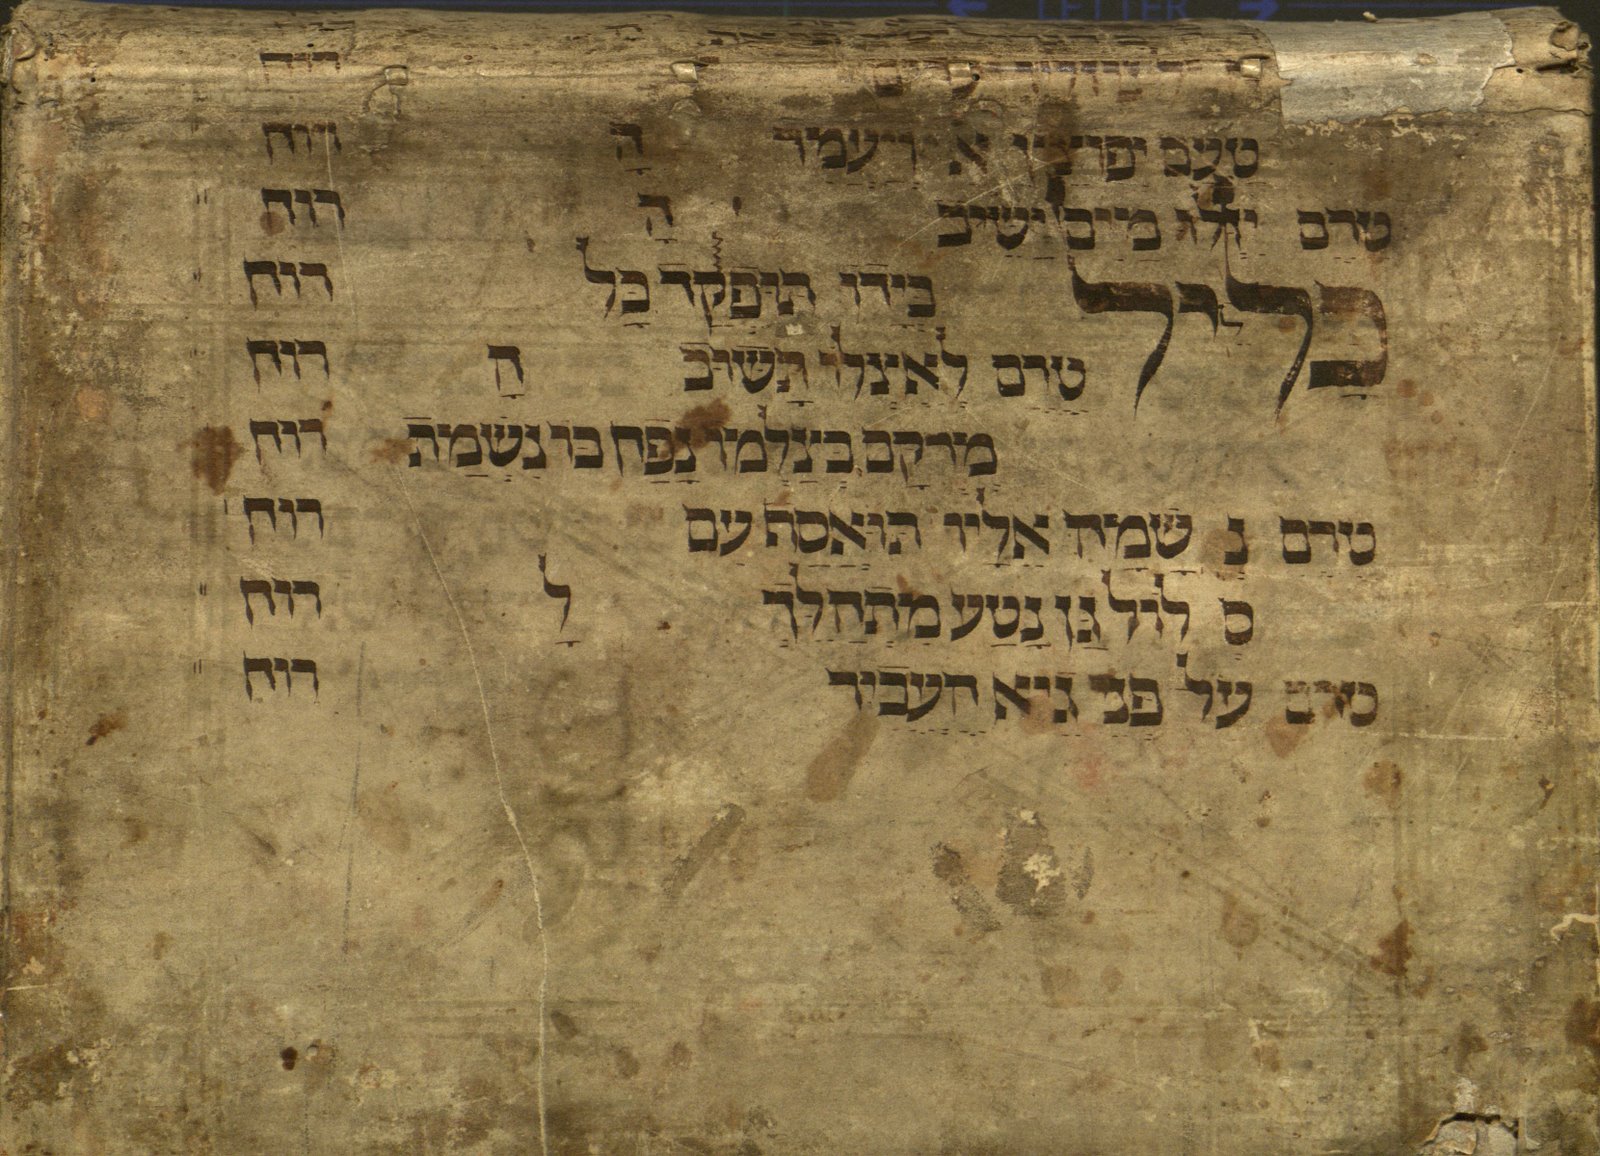 רוח
יעמד ה רוח
טרם מים ישיב ה רוח
כליל בידו תופקד כל רוח
טרם לאצלו תשוב ה רוח
מרקם בצלמו נפח בו נשמת רוח
טרם נ שמיה אליו תואסף עם רוח
ס לול גן נטע מתהלך ל רוח
טרם על פני גיא העביר רוח